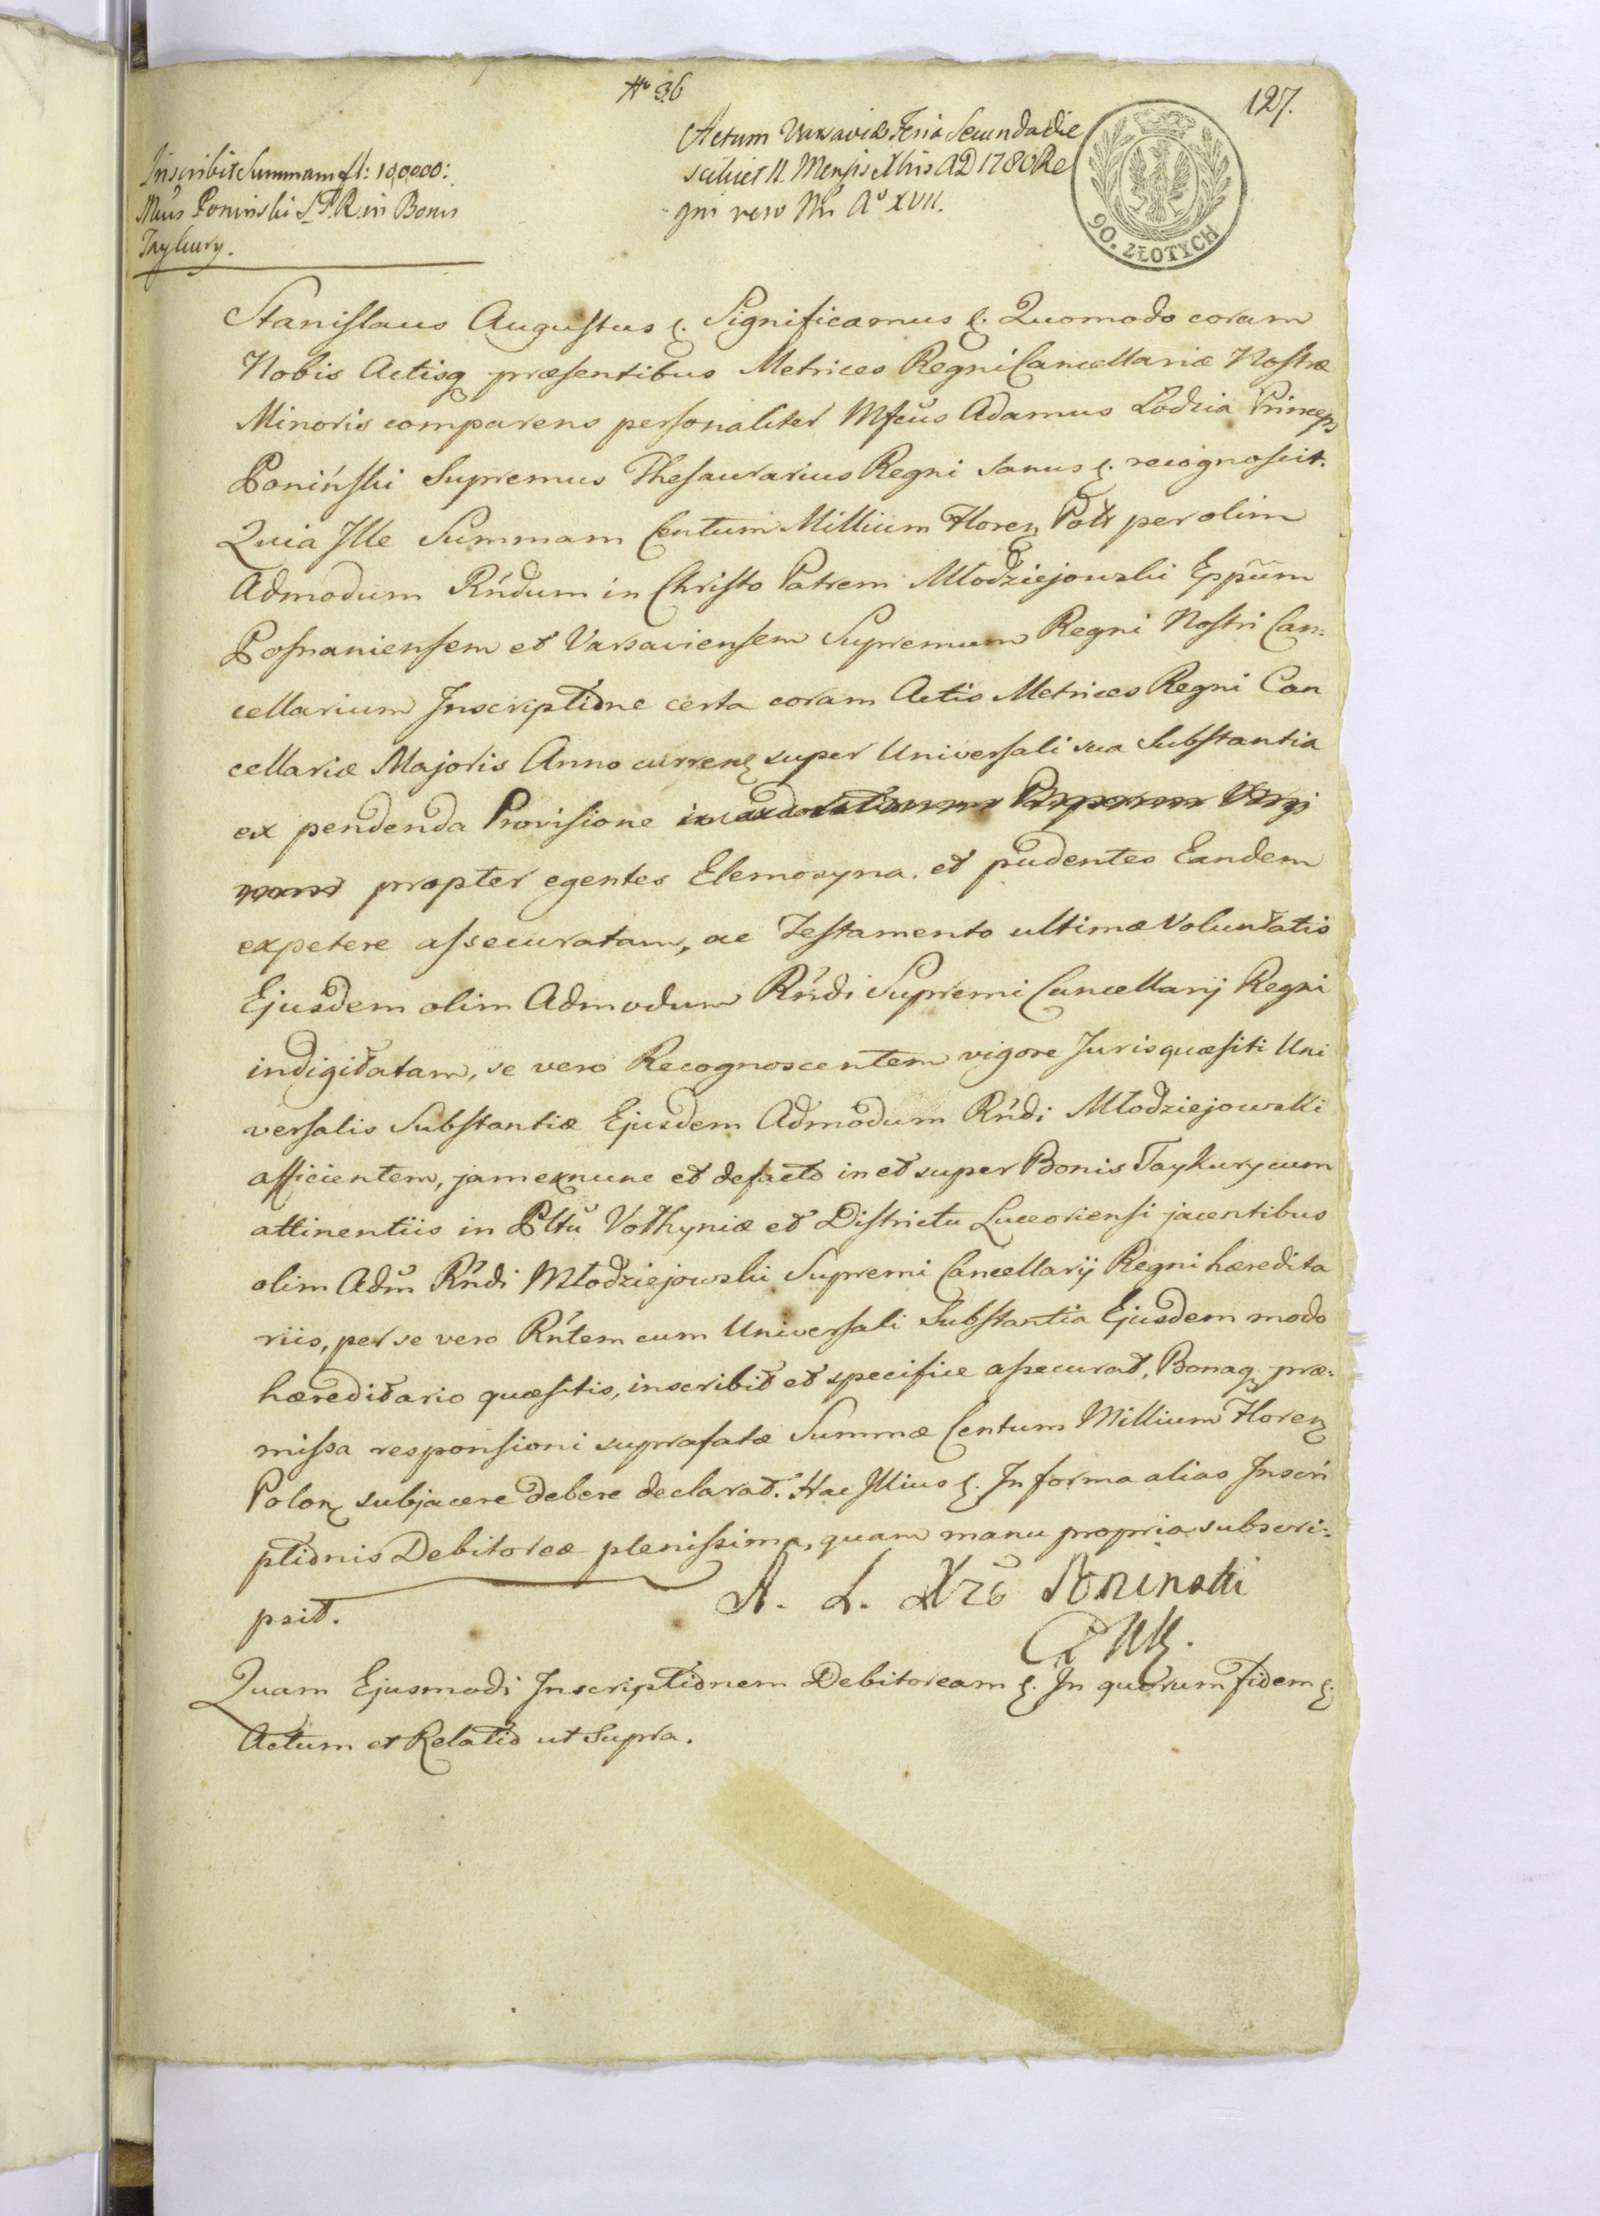 № 36
127.
Actum Varsaviæ Feria Secunda die
scilicet 11 Mensis Xbris AD 1780 Re
gni vero Nri A° XVII.
90. ZŁOTYCH
Inscribit Summam fl: 100000:
Mcus Poninski S.T.R. in Bonis
Taykury.
Stanislaus Augustus &. Significamus &. Quomodo coram
Nobis Actisq præsentibus Metrices Regni Cancellariæ Nostræ
Minoris comparens personaliter Mfcus Adamus Lodzia Princeps
Poniński Supremus Thesaurarius Regni Sanus &. recognoscit.
Quia Ille Summam Centum Millium Floren Polł per olim
Admodum Rńdum in Christo Patrem Młodziejowski Eppum
Posnaniensem et Varsaviensem Supremum Regni Nostri Can:
cellarium Inscriptione certa coram Actis Metrices Regni Can
cellariæ Majoris Anno curren super Universali sua Substantia
ex pendenda Provisione
propter egentes Elemosyna. et pudentes Eandem
expetere assecuratam, ac Testamento ultimæ Voluntatis
Ejusdem olim Admodum Rńdi Supremi Cancellarij Regni
indigitatam, se vero Recognoscentem vigore Juris quæsiti Uni
versalis Substantiæ Ejusdem Admodum Rńdi Młodziejowski
afficientem, jam exnunc et defacto in et super Bonis Taykury cum
attinentiis in Pltu Volhyniæ et Districtu Luceoriensi jacentibus
olim Adm Rńdi Młodziejowski Supremi Cancellarij Regni hæredita
riis, per se vero Rńtem cum Universali Substantia Ejusdem modo
hæreditario quæsitis, inscribit et specifice assecurat, Bonaq præ:
missa responsioni suprafatæ Summæ Centum Millium Floren
Polon subjacere debere declarat. Hac Illius &. In forma alias Inscri
ptionis Debitoreæ plenissima, quam manu propria subscri:
psit.
A. L. Xże Poninski
PWK.
Quam Ejusmodi Inscriptionem Debitoream &. In quorum fidem &.
Actum et Relatio ut Supra.